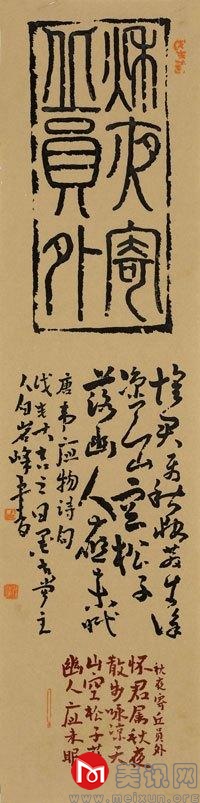 秌夜寄
丘員外
懷君屬秋夜散步詠
涼天山空松子
落幽人應未眠
唐韦應物诗句
秋夜寄丘員外
怀君属秋夜
散步咏凉天
山空松子落
幽人应未眠
美讯网
www.meixun.org